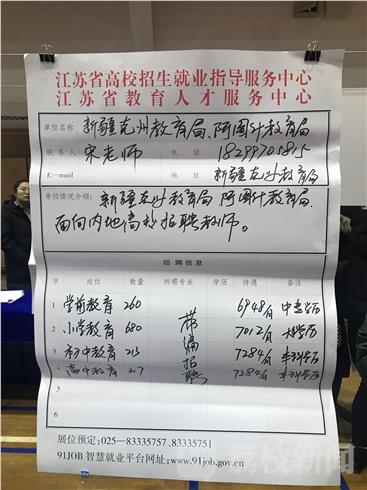 江苏省高校招生就业指导服务中心
江苏省教育人才服务中心
单位名称 新疆克州教育局、阿图什教育局
联系人 宋老师 电话 18299705815
E-mail 地址 新疆克州教育局
单位情况介绍: 新疆克州教育局、阿图什教育局,
面向内地高校招聘教师。
招聘信息
序 岗位 数量 所需专业 学历 待遇 备注
1 学前教育 260 6948/月 中专学历
2 小学教育 680 7012/月 大专学历
3 初中教育 213 7284/月 本科学历
4 高中教育 217 7284/月 本科学历
带编招聘
5
6
展位预定:025-83335757,83335751
91JOB 智慧就业平台网址:www.91job.gov.cn
荔枝新闻